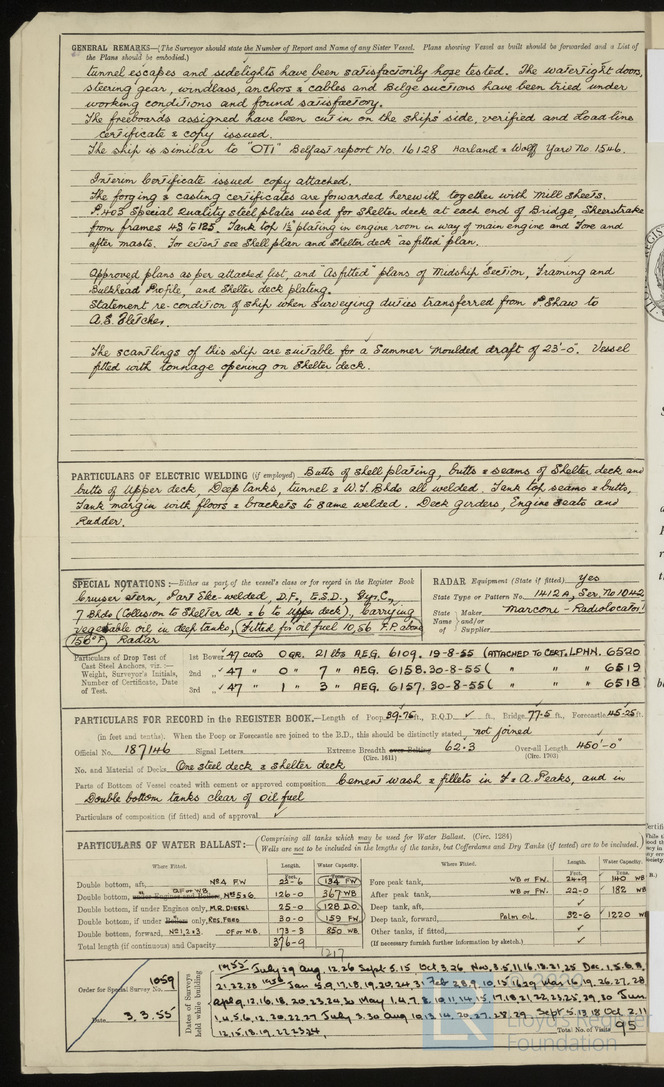 GENERAL REMARKS—(The Surveyor should state the Number of Report and Name of any Sister Vessel. Plans showing Vessel as built should be forwarded and a List of
the Plans should be embodied.)
tunnel escapes and sidelights have been satisfactorily hose tested. The watertight doors,
steering gear, windlass, anchors & cables and Bilge suctions have been tried under
working conditions and found satisfactory.
The freeboards assigned have been cut in on the ships' side, verified and Load line
certificate & copy issued.
The ship is similar to "OTI" Belfast report No. 16128 Harland & Wolff Yard No. 1546.
Interim Certificate issued copy attached.
The forging & casting certificates are forwarded herewith together with mill sheets.
P.403 Special Quality steel plates used for Shelter deck at each end of Bridge, Sheerstrake
from frames 43 to 125. Tank top 1½" plating in engine room in way of main engine and Fore and
after masts. For extent see Shell plan and Shelter deck as fitted plan.
Approved plans as per attached list, and "As fitted" plans of Midship Section, Framing and
Bulkhead Profile, and Shelter deck plating.
Statement re-condition of ship when surveying duties transferred from P. Shaw to
A.S. Fletcher.
The scantlings of this ship are suitable for a Summer moulded draft of 23'-0". Vessel
fitted with tonnage opening on Shelter deck.
PARTICULARS OF ELECTRIC WELDING (if employed) Butts of shell plating, butts & seams of Shelter deck and
butts of upper deck. Deep tanks, tunnel & W.T. Bhds all welded. Tank top seams & butts,
Tank margin with floors & brackets to same welded. Deck girders, Engine seats and
Rudder.
SPECIAL NOTATIONS:—Either as part of the vessel's class or for record in the Register Book
Cruiser stern, Part Elec-welded, D.F., E.S.D., Gyr.C.,
7 Bhds (Collision to Shelter dk & 6 to Upper deck), Carrying
vegetable oil in deep tanks, Fitted for oil fuel 10,56 F.P. above
150°F Radar
RADAR Equipment (State if fitted) Yes
State Type or Pattern No. 1412A, Ser. No 1042
State Name of Maker and/or Supplier Marconi - Radiolocator
Particulars of Drop Test of Cast Steel Anchors, viz.:— Weight, Surveyor's Initials, Number of Certificate, Date of Test.
1st Bower 47 cwts 0 QR. 21 lbs AEG. 6109. 19-8-55 (ATTACHED TO CERT. LPHN. 6520
2nd " 47 " 0 " 7 " AEG. 6158. 30-8-55 ( " " " 6519
3rd " 47 " 1 " 3 " AEG. 6157. 30-8-55 ( " " " 6518
PARTICULARS FOR RECORD in the REGISTER BOOK.—Length of Poop 39.75 ft., R.Q.D. ft., Bridge 77.5 ft., Forecastle 45.25 ft.
(in feet and tenths). When the Poop or Forecastle are joined to the B.D., this should be distinctly stated not joined
Official No. 187146 Signal Letters Extreme Breadth over Belting 62.3 Over-all Length 450'-0"
(Circ. 1611) (Circ. 1703)
No. and Material of Decks One steel deck & shelter deck
Parts of Bottom of Vessel coated with cement or approved composition Cement wash & fillets in F & A Peaks, and in
Double bottom tanks clear of oil fuel
Particulars of composition (if fitted) and of approval
PARTICULARS OF WATER BALLAST:— (Comprising all tanks which may be used for Water Ballast. (Circ. 1284)
Wells are not to be included in the lengths of the tanks, but Cofferdams and Dry Tanks (if tested) are to be included.)
Where Fitted. Length. Water Capacity. Where Fitted. Length. Water Capacity.
Feet. Tons. Feet. Tons.
Double bottom, aft, No4 F.W 22-6 134 FW Fore peak tank, WB or FW. 24-9 140 WB
Double bottom, under Engines and Boilers, O.F or WB. Nos 5&6. 126-0 367 WB After peak tank, WB or FW. 22-0 182 WB
Double bottom, if under Engines only, M.R. DIESEL 25-0 128 D.O. Deep tank, aft,
Double bottom, if under Boilers only, Res. Feed 30-0 159 FW Deep tank, forward, Palm oil 32-6 1220 WB
Double bottom, forward, Nos 1,2&3. OF or W.B. 173-3 850 WB. Other tanks, if fitted,
Total length (if continuous) and Capacity 376-9 (If necessary furnish further information by sketch.)
1217
Order for Special Survey No. 1059
Date 3.3.55
Dates of Surveys held while building
1955 July 29 Aug. 12.26 Sept 5.15 Oct 3.26 Nov. 3.5.11.16.18.21.25 Dec. 1.5.6.8.
21.22.28 1956 Jan 5.9.17.18.19.20.24.31 Feb 28.9.10.15.16.29 Mar 16.19.26.27.28
Apl 9.12.16.18.20.23.24.30 May 1.4.7.8.10.11.14.15.17.18.21.22.23.25.29.30 June
1.4.5.6.12.20.22.27 July 3.30 Aug 10.13.14.20.27.28.29 Sept 5.13.18 Oct 2.11
12.15.18.19.22.23.24.
Total No. of Visits 95
© 2020
Lloyd's Register
Foundation